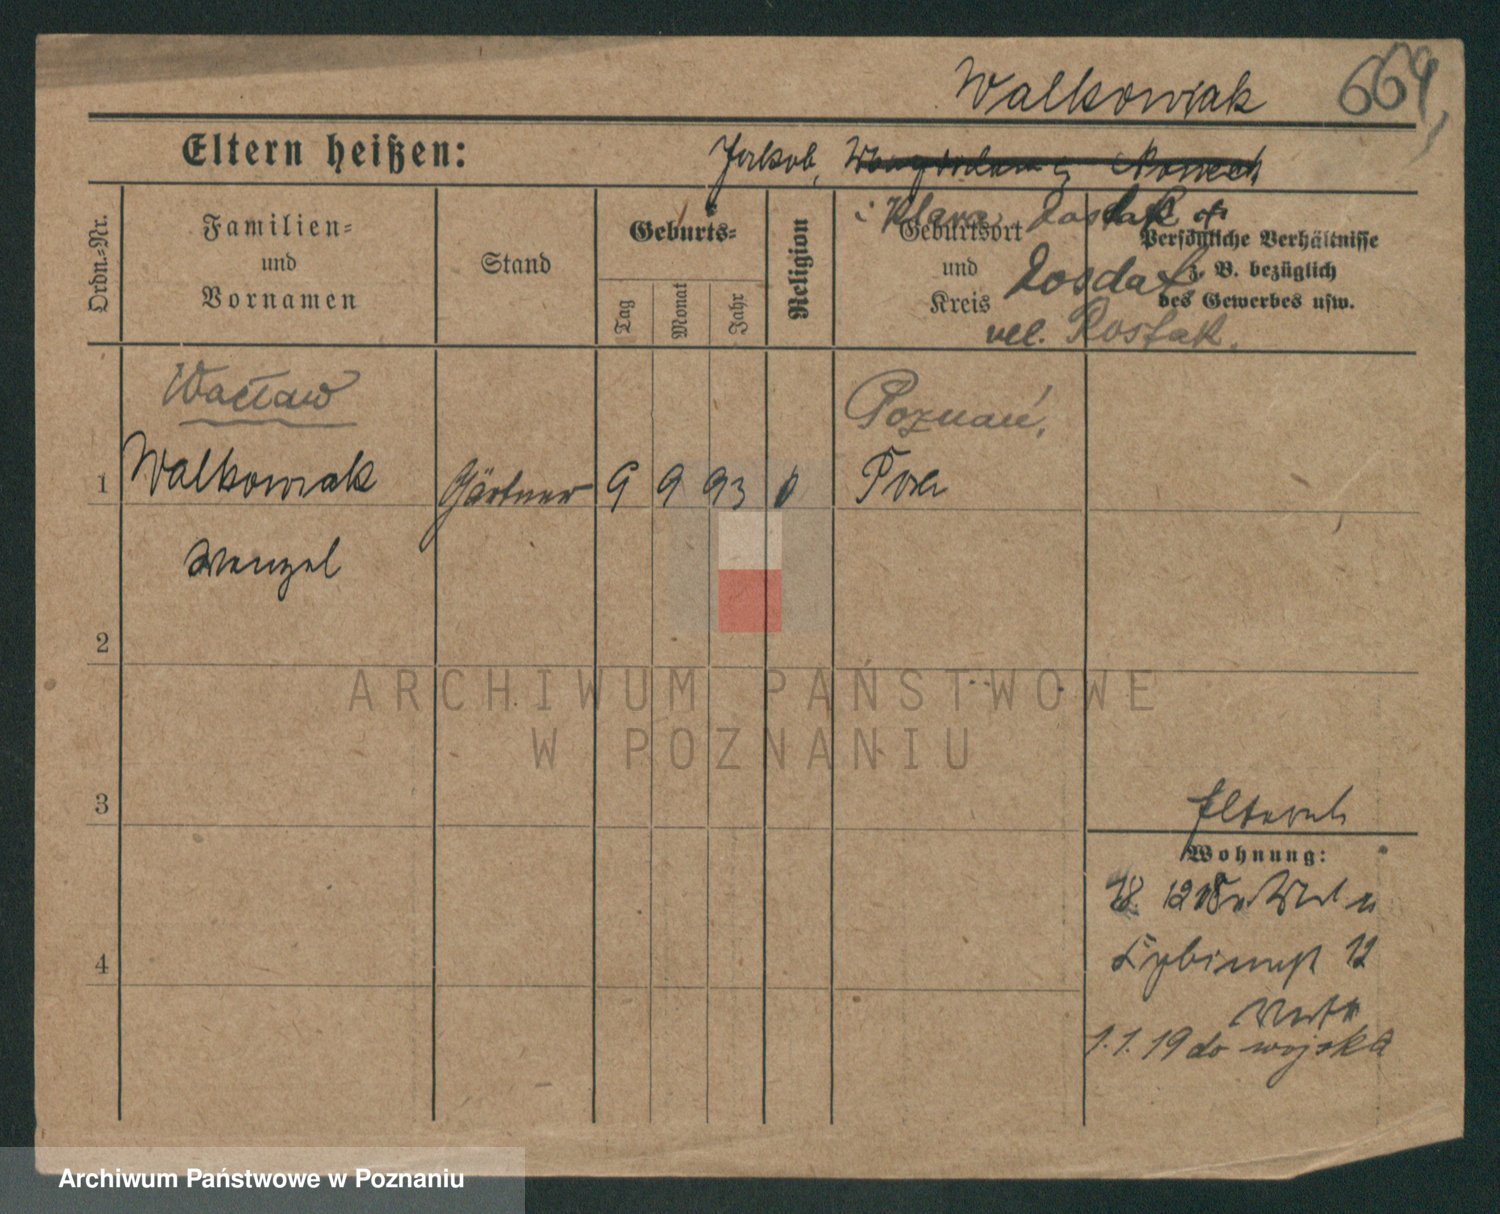 Walkowiak 669,
Eltern heißen: Jakob,
i Klara
Ordn.-Nr.
Familien-
und
Vornamen
Stand
Geburts-
Tag Monat Jahr
Religion
Geburtsort
und
Kreis
Persönliche Verhältnisse
z. B. bezüglich
des Gewerbes usw.
vel. Rostak.
Wacław
Poznań,
1 Walkowiak Gärtner 9 9 93
Wenzel
2
3
4
Wohnung:
12
1.1.19 do wojska
ARCHIWUM PAŃSTWOWE
W POZNANIU
Archiwum Państwowe w Poznaniu